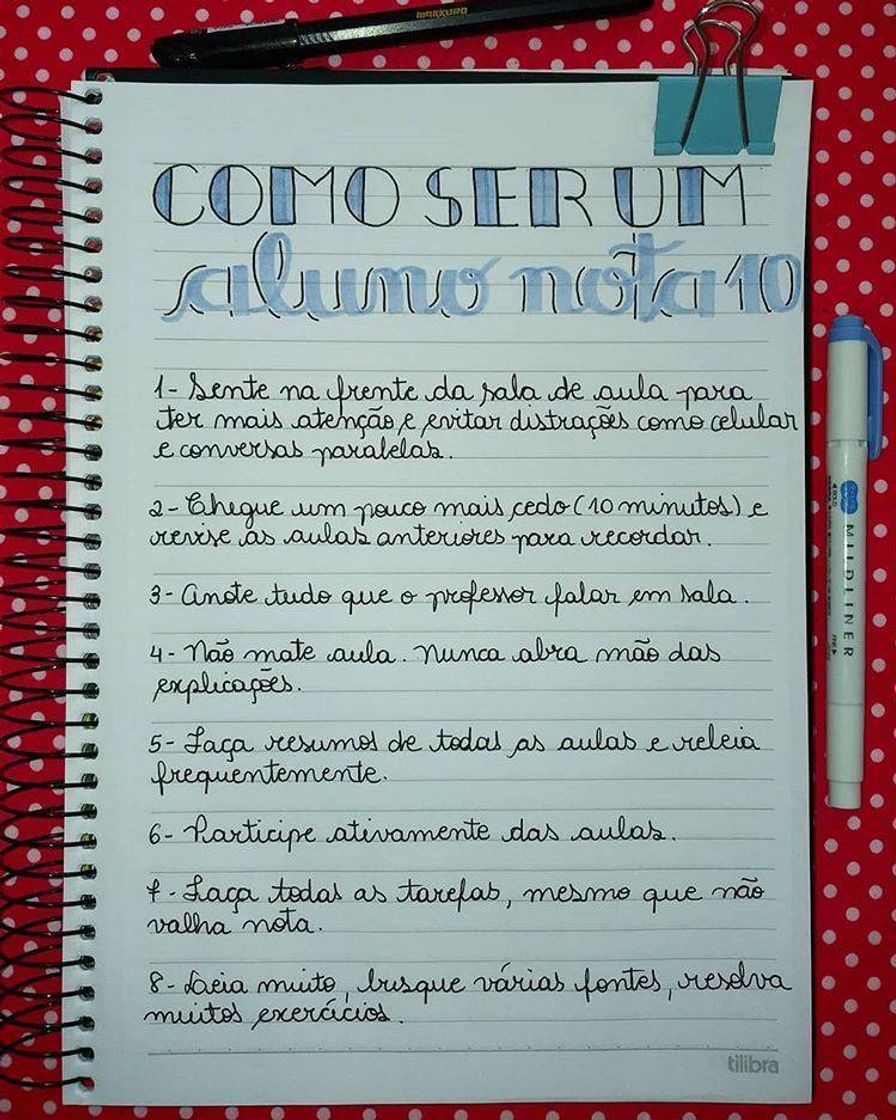 MAKKURO
COMO SER UM
aluno nota 10
1- Sente na frente da sala de aula para
ter mais atenção e evitar distrações como celular
e conversas paralelas.
2- Chegue um pouco mais cedo (10 minutos) e
revise as aulas anteriores para recordar.
3- Anote tudo que o professor falar em sala.
4- Não mate aula. Nunca abra mão das
explicações.
5- Faça resumos de todas as aulas e releia
frequentemente.
6- Participe ativamente das aulas.
7- Faça todas as tarefas, mesmo que não
valha nota.
8- Leia muito, busque várias fontes, resolva
muitos exercícios.
tilibra
MILDLINER